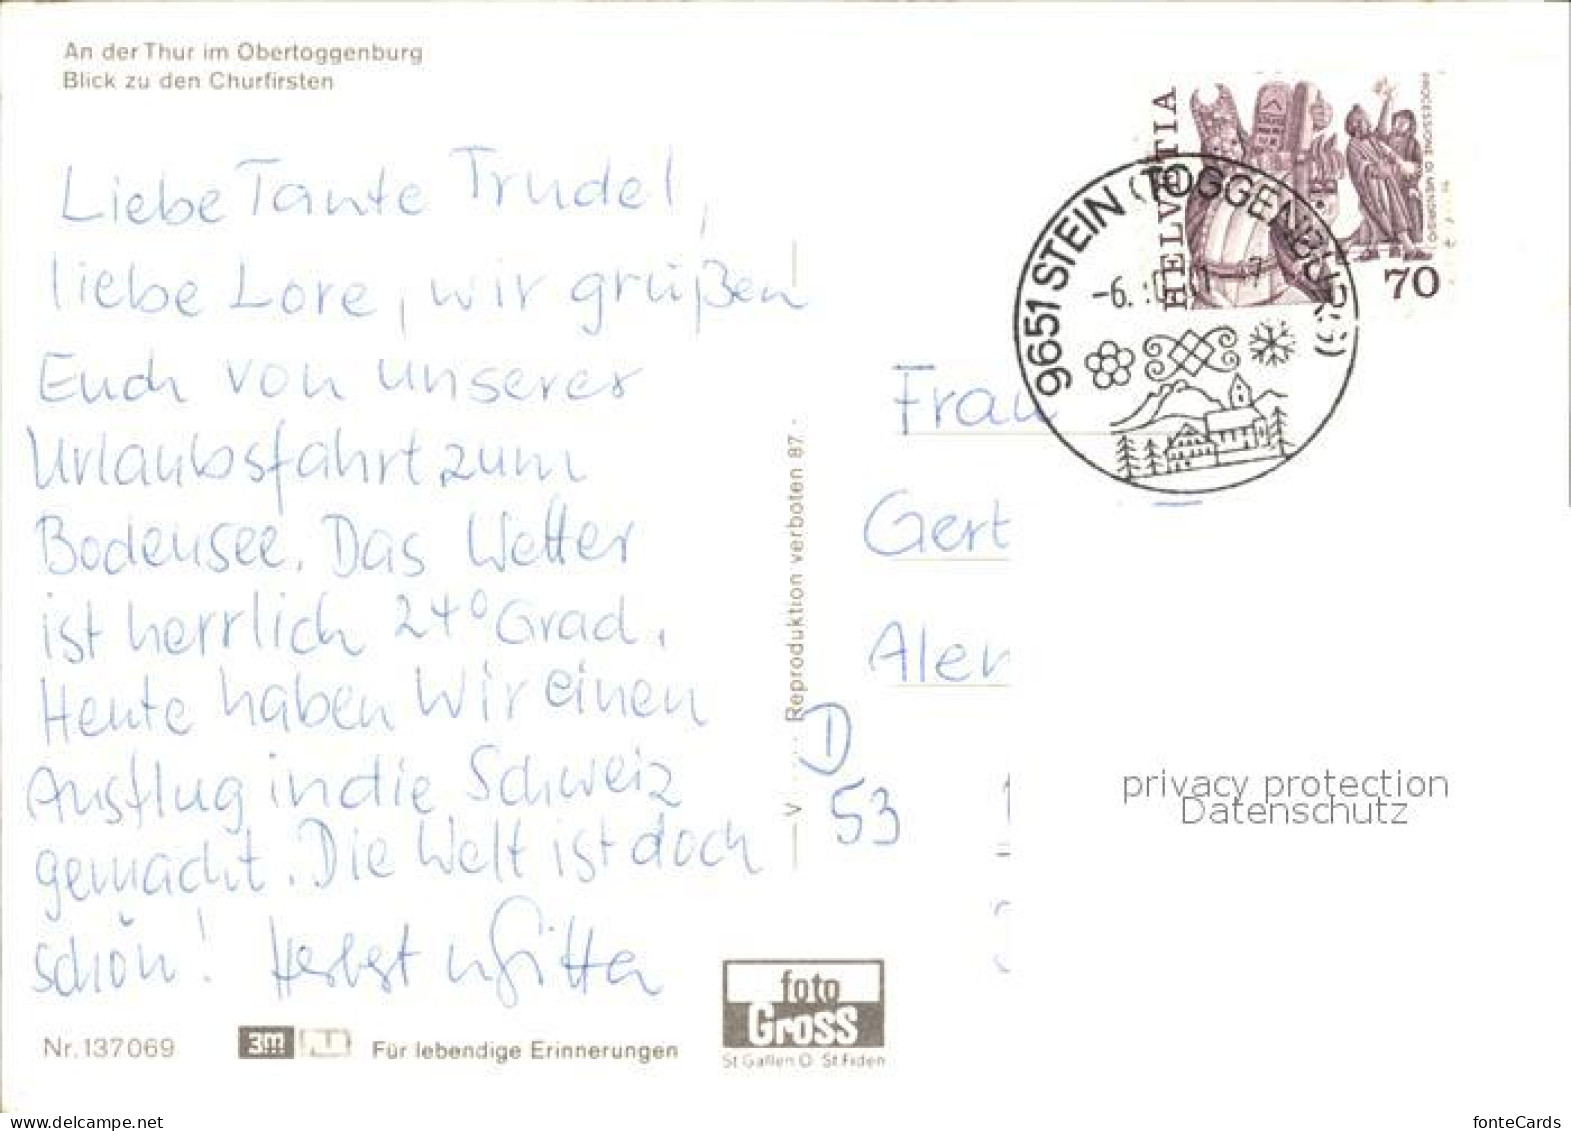 An der Thur im Obertoggenburg
Blick zu den Churfirsten
Liebe Tante Trudel,
liebe Lore, wir grüßen
Euch von unserer
Urlaubsfahrt zum
Bodensee. Das Wetter
ist herrlich 24° Grad.
Heute haben wir einen
Ausflug in die Schweiz
gemacht. Die Welt ist doch
schön! Herbert u Gitta
Nr. 137069
3m
Für lebendige Erinnerungen
foto
Gross
St Gallen O St Fiden
V
Reproduktion verboten 87
HELVETIA
PROCESSIONE DI MENDRISIO
70
9651 STEIN (TOGGENBURG)
-6.
Frau
Gert
Aler
D
53
privacy protection
Datenschutz
www.delcampe.net
fonteCards